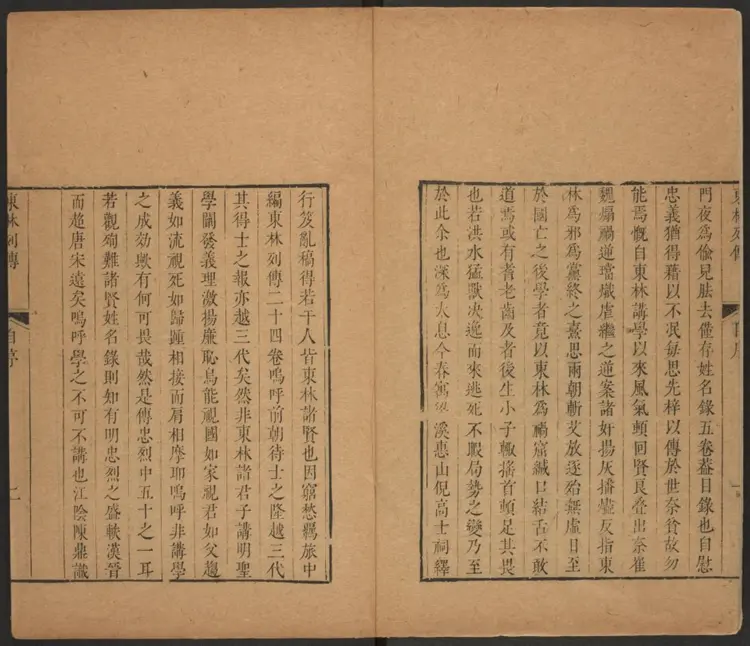 東林列傳
自序
一
門夜為偷兒胠去僅存姓名錄五卷葢目錄也自慰
忠義猶得藉以不泯每思先梓以傳於世奈貧故勿
能焉慨自東林講學以來風氣頓回賢良叠出奈崔
魏煽禍逆璫熾虐繼之逆案諸奸揚灰播燼反指東
林為邪為黨終之熹思兩朝斬艾放逐殆無虛日至
於國亡之後學者竟以東林為禍窟緘口結舌不敢
道焉或有耆老齒及者後生小子輙搖首頓足其畏
也若洪水猛獸决逸而來逃死不暇局勢之變乃至
於此余也深為太息今春寓溪惠山倪高士祠繹
行笈亂稿得若干人皆東林諸賢也因窮愁羈旅中
編東林列傳二十四卷嗚呼前朝待士之隆越三代
其得士之報亦越三代矣然非東林諸君子講明聖
學闡發義理激揚廉恥烏能視國如家視君如父趨
義如流視死如歸踵相接而肩相摩耶嗚呼非講學
之成効歟有何可畏哉然是傳忠烈中五十之一耳
若觀殉難諸賢姓名錄則知有明忠烈之盛軼漢晉
而趨唐宋遠矣嗚呼學之不可不講也江陰陳鼎識
東林列傳
自序
二